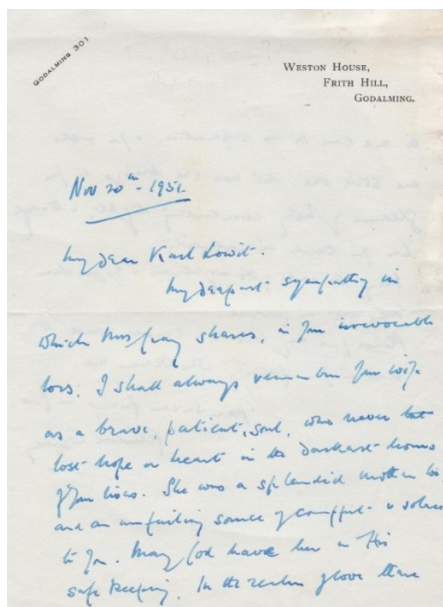 GODALMING 301
WESTON HOUSE,
FRITH HILL,
GODALMING.
Nov 20th - 1951.
My dear Karl Lowit.
My deepest sympathy in
which Mrs Gray shares, in your irrevocable
loss. I shall always remember your wife
as a brave, patient, soul, who never
lost hope or heart in the darkest hours
of your lives. She was a splendid mother
and an unfailing source of comfort & solace
to you. May God have her in His
safe keeping. In the realm of love there